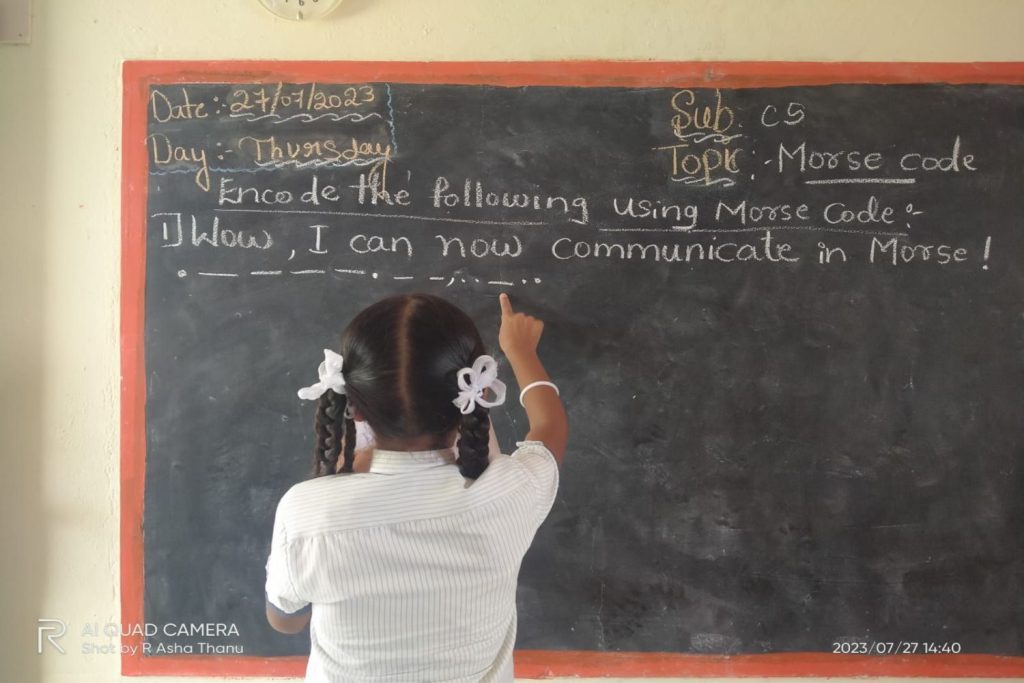 Date:- 27/07/2023
Day:- Thursday
Sub. CS
Topic:- Morse code
Encode the following using Morse Code:-
1] Wow, I can now communicate in Morse!
. _ _ _ _ _ . _ _ , . . _ . .
R AI QUAD CAMERA
Shot by R Asha Thanu
2023/07/27 14:40